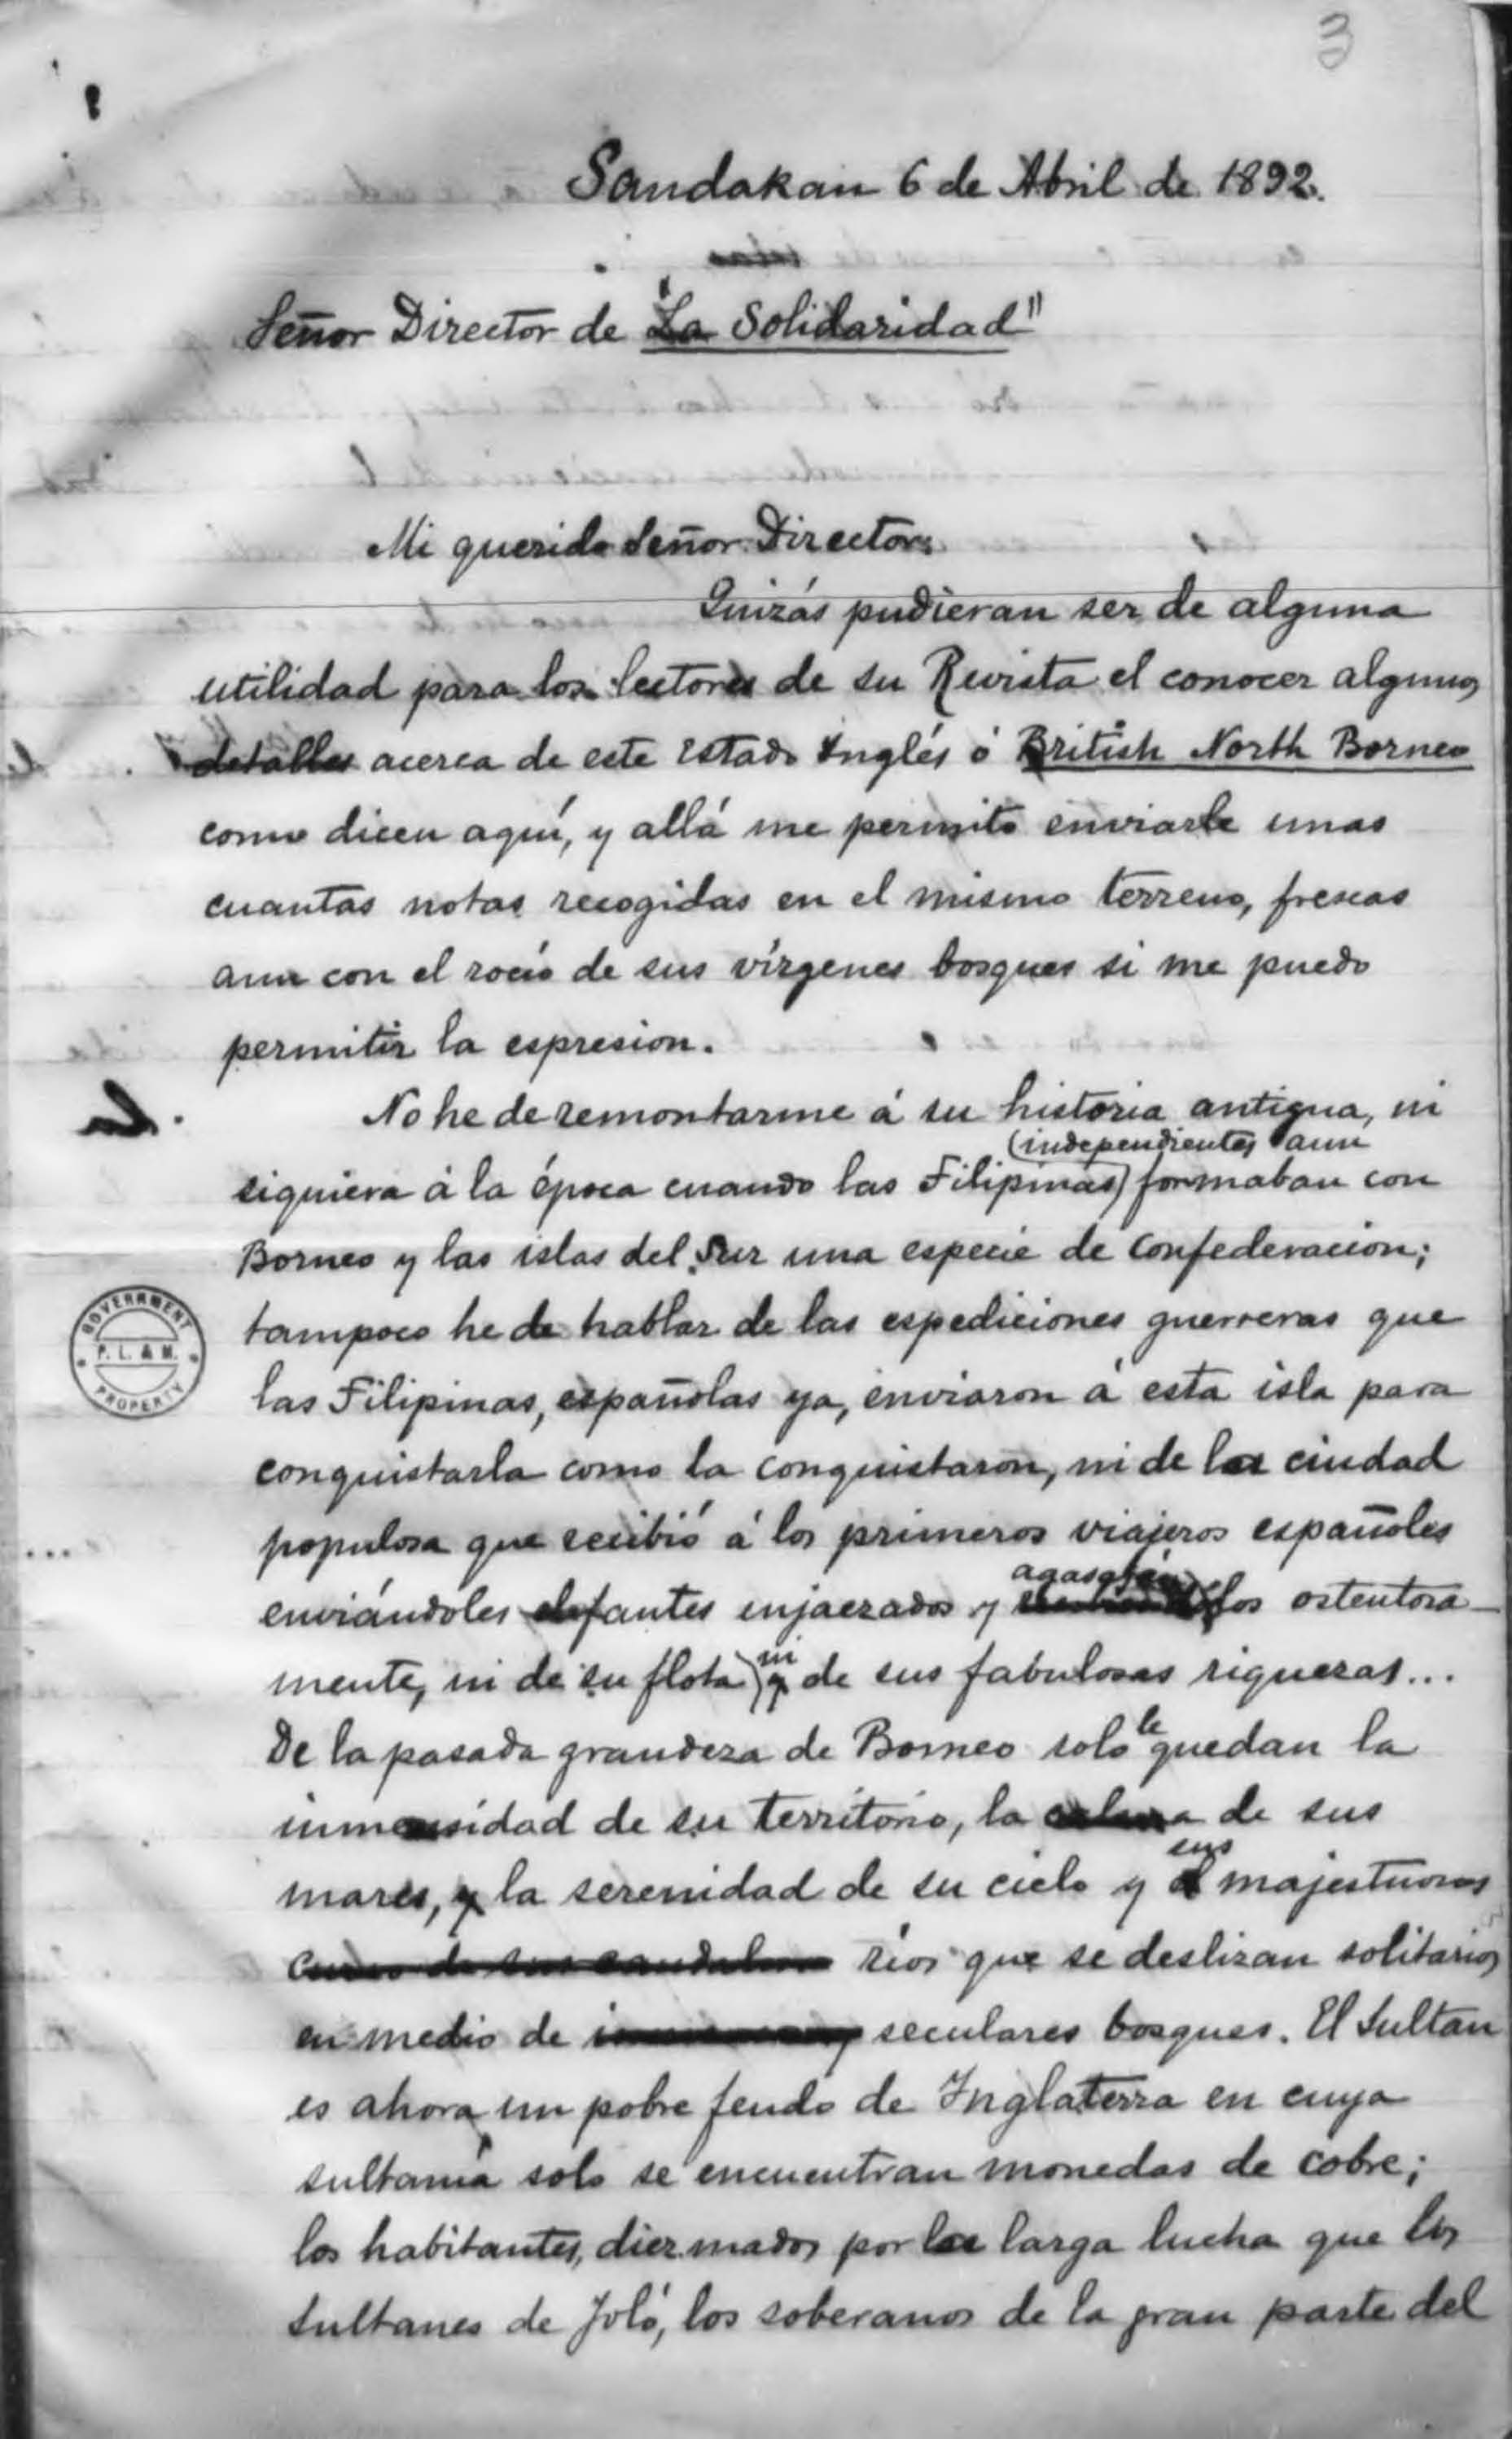 3
Sandakan 6 de Abril de 1892.
Señor Director de "La Solidaridad"
Mi querido Señor Director:
Quizás pudieran ser de alguna
utilidad para los lectores de su Revista el conocer algunos
detalles acerca de este Estado Inglés ó British North Borneo
como dicen aquí, y allá me permito enviarle unas
cuantas notas recogidas en el mismo terreno, frescas
aun con el rocío de sus vírgenes bosques si me puedo
permitir la espresion.
No he de remontarme á su historia antigua, ni
(independientes aun
siquiera á la época cuando las Filipinas) formaban con
Borneo y las islas del Sur una especie de Confederacion;
tampoco he de hablar de las espediciones guerreras que
las Filipinas, españolas ya, enviaron á esta isla para
conquistarla como la conquistaron, ni de la ciudad
populosa que recibió á los primeros viajeros españoles
enviándoles elefantes enjaezados y los ostentosa-
mente, ni de su flota ni de sus fabulosas riquezas...
De la pasada grandeza de Borneo solo le quedan la
inmensidad de su territorio, la calma de sus
mares, y la serenidad de su cielo y sus majestuosos
ríos que se deslizan solitarios
en medio de seculares bosques. El Sultan
es ahora un pobre feudo de Inglaterra en cuya
sultanía solo se encuentran monedas de cobre;
los habitantes, diezmados por la larga lucha que los
Sultanes de Joló, los soberanos de la gran parte del
GOVERNMENT
P. L. & M.
PROPERTY